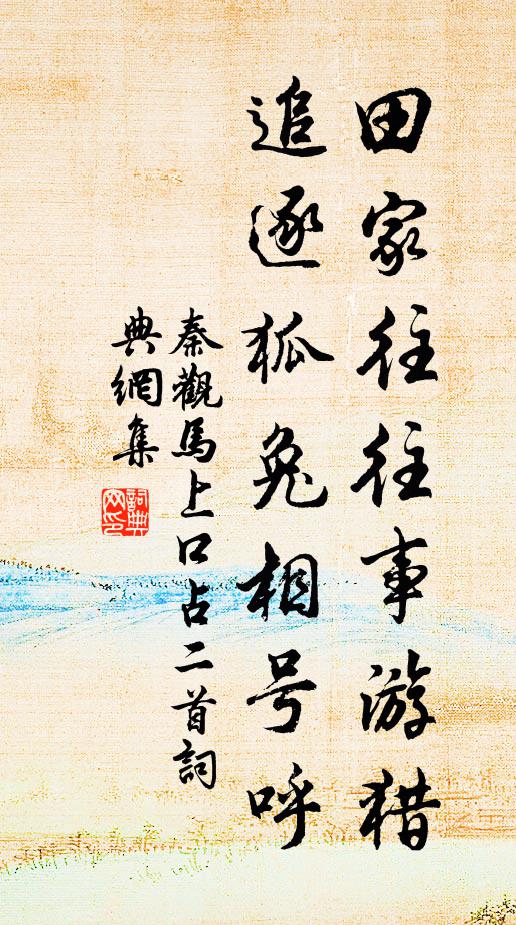 田家往往事游猎
追逐狐兔相号呼
秦觀馬上口占二首詞
典網集
詞典网印